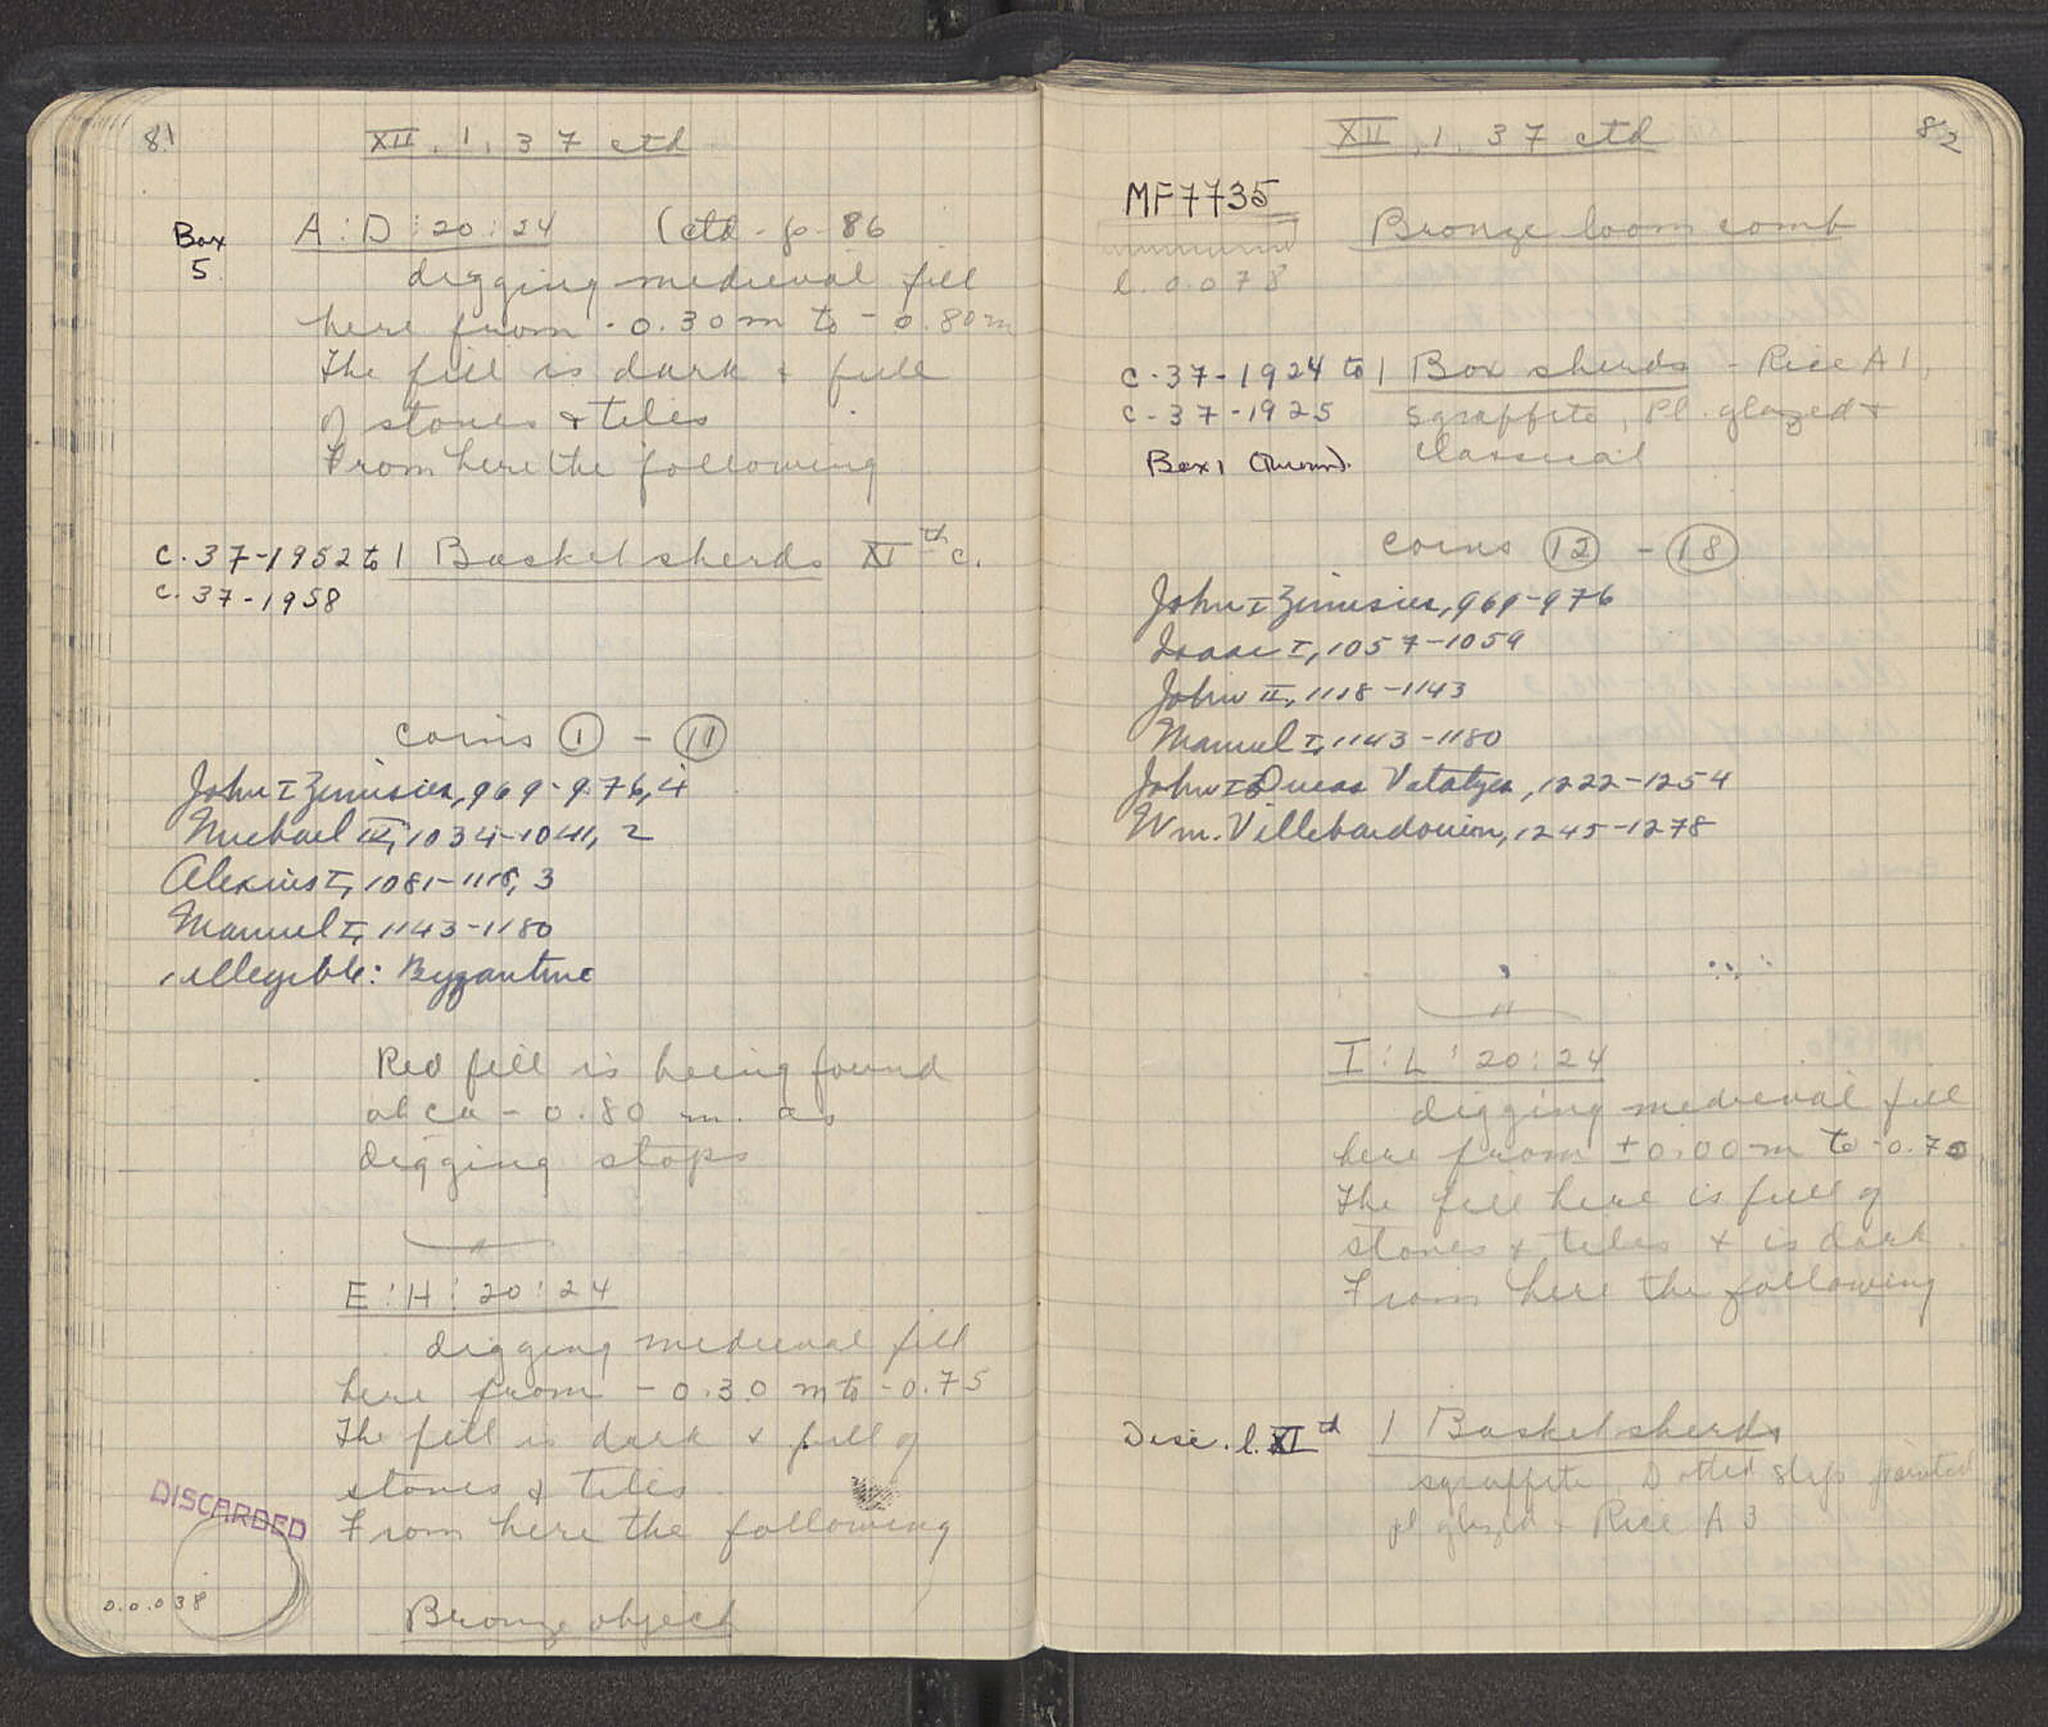 81
XII. 1. 37 ctd
Box
5
A:D:20:24 (ctd. p. 86
digging medieval fill
here from -0.30m to -0.80m
The fill is dark & full
of stones & tiles
From here the following
C.37-1952 to 1 Basket sherds XIth c.
C.37-1958
coins 1 - 11
John I Zimisces, 969-976, 4
Michael IV, 1034-1041, 2
Alexius I, 1081-1118, 3
Manuel I, 1143-1180
illegible: Byzantine
Red fill is being found
at ca - 0.80 m. as
digging stops
E:H:20:24
digging medieval fill
here from -0.30 m to -0.75
The fill is dark & full of
stones & tiles
From here the following
DISCARDED
D. 0.038
Bronze object
82
XII. 1. 37 ctd
MF7735
Bronze loom comb
l. 0.078
C.37-1924 to 1 Box sherds - Rice A1,
C-37-1925 Sgraffito, Pl. glazed &
Box 1 classical
coins 12 - 18
John I Zimisces, 969-976
Isaac I, 1057-1059
John II, 1118-1143
Manuel I, 1143-1180
John Ducas Vatatzes, 1222-1254
Wm. Villehardouin, 1245-1278
I:L:20:24
digging medieval fill
here from ±0.00m to -0.70
The fill here is full of
stones & tiles & is dark.
From here the following
Disc. l. XIth 1 Basket sherds
sgraffito, Dotted slip painted
pl glazed & Rice A 3